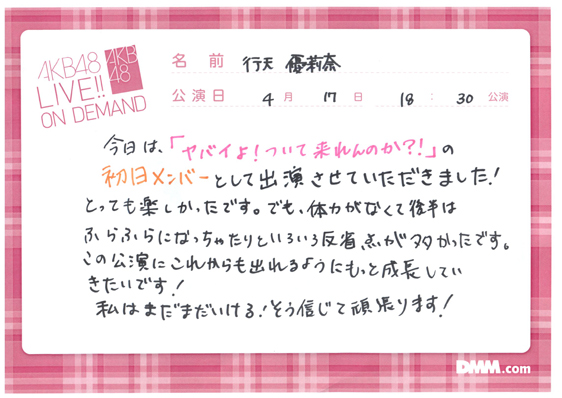 AKB48
LIVE!!
ON DEMAND
AKB
48
名前 行天 優莉奈
公演日 4月 17日 18:30公演
今日は、「ヤバイよ!ついて来れんのか?!」の
初日メンバーとして出演させていただきました!
とっても楽しかったです。でも、体力がなくて後半は
ふらふらになっちゃたりといろいろ反省点が多かったです。
この公演にこれからも出れるようにもっと成長してい
きたいです!
私はまだまだいける!そう信じて頑張ります!
DMM.com